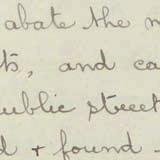 abate the
ts, and ca
public street
d + found